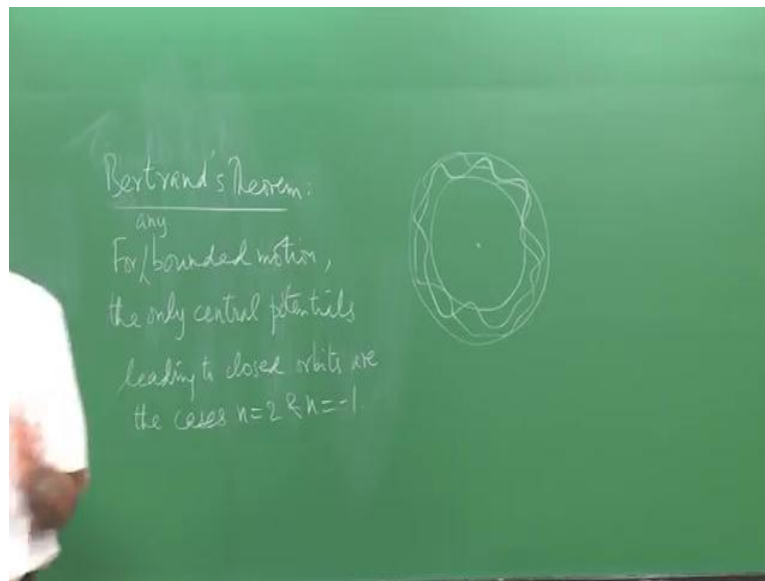 Bertrand's Theorem:
any
For bounded motion,
the only central potentials
leading to closed orbits are
the cases n=2 & n=-1.